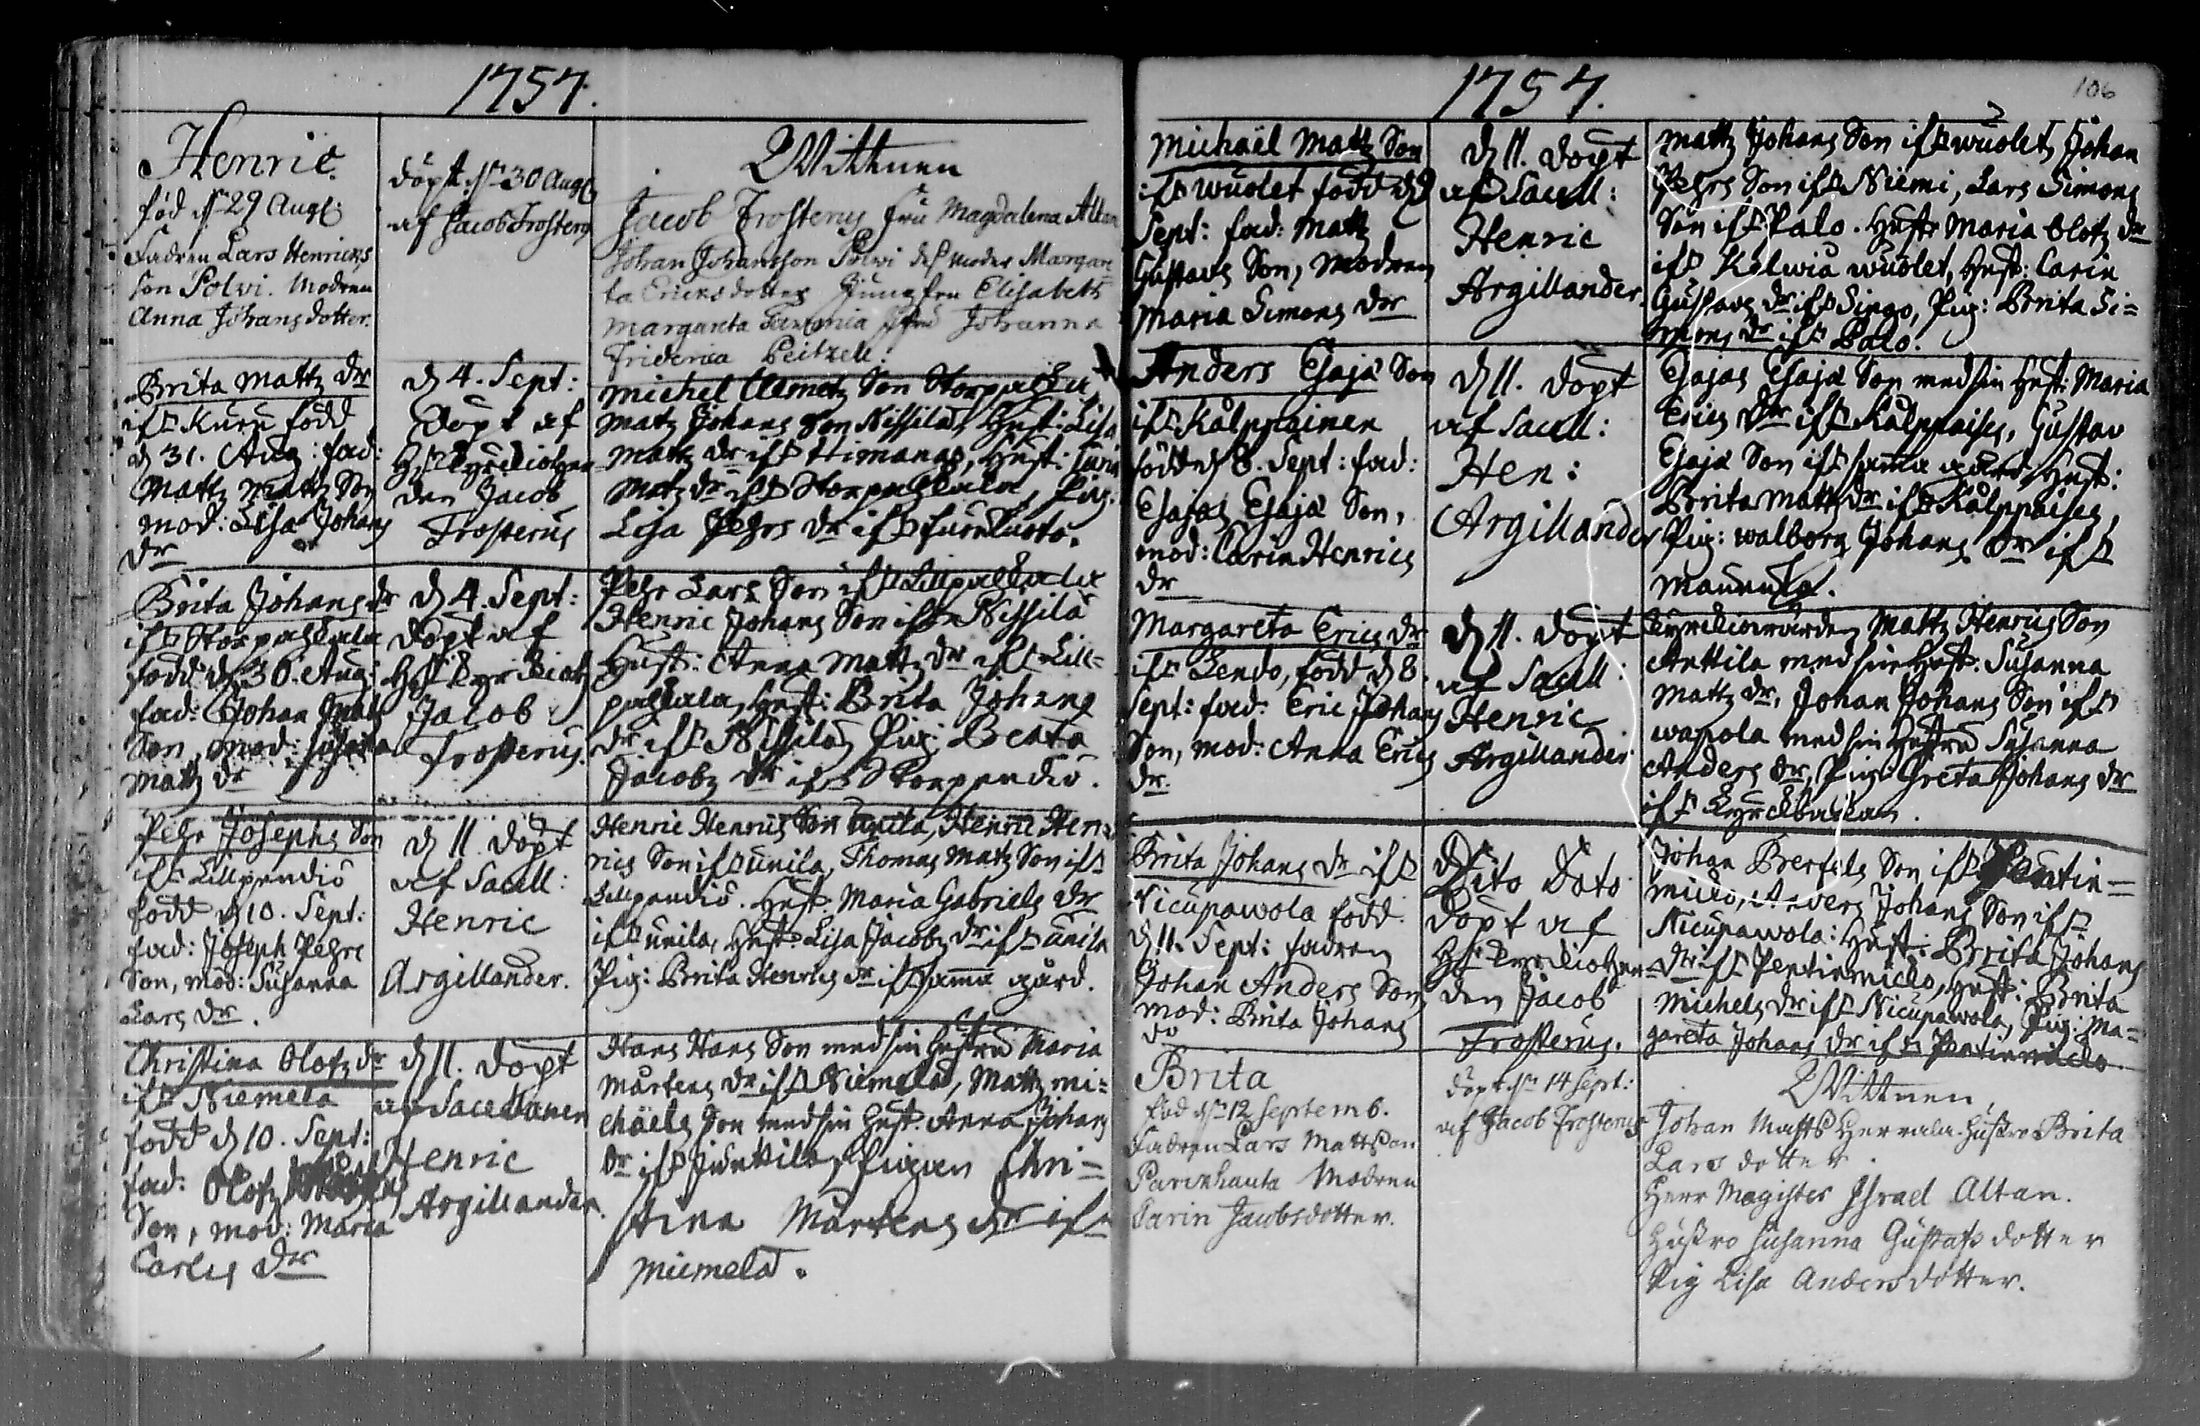 1757.
Henric
född d 29 Aug:
Fadren Lars Henrics
son Polvi. Modren
Anna Johans dotter.
döpt d 30 Aug:
af Jacob Frosterus
Wittnen
Jacob Frosterus Fru Magdalena Altan
Johan Johansson Polvi des moder Margare
ta Ericsdotter Jungfru Elisabeth
Margareta Jfru Johanna
Friderica Peitzell:
Brita Mattz dr
if Kuru född
d 31. Aug: fad:
Mattz Mattz Son
mod: Lisa Johans
dr
d 4. Sept:
döpt af
H
den Jacob
Frosterus
Michel Clemetz Son Storpackala
Matz Johans Son Nissilä, Hust: Lisa
Mattz dr if Himanga, Hust: Carin
Matz dr if Storpackala, Pig:
Lisa Pehrs dr if
Brita Johans dr
if Storpackala
född d 30. Aug:
fad: Johan Matz
Son, mod: Susanna
Matz dr
d 4. Sept:
döpt af
H
Jacob
Frosterus.
Pehr Lars Son if Lillpackala
Henric Johans Son if Nissilä
Hust: Anna Mattz dr if Lill=
packala, Hust: Brita Johans
dr if Nissilä Pig: Beata
Jacobz dr if Storpendiö.
Pehr Josephs Son
if Lillpendiö
född d 10. Sept:
fad: Joseph Pehrs
Son, mod: Susanna
Lars dr.
d 11. döpt
af Sacell:
Henric
Argillander.
Henric Henrics Son Unila, Henric Hen=
rics Son if Unila, Thomas Matz Son if
Lillpendiö. Hust: Maria Gabriels dr
if Unila, Hust: Lisa Jacobz dr if Unila
Pig: Brita Henrics dr if samma gård.
Christina Olofz dr
if Niemela
född d 10. Sept:
fad: Olofz
Son, mod: Maria
Carls dr
d 11. döpt
af Sacellanen
Henric
Argillander.
Hans Hans Son med sin Hustru Maria
Mårtens dr if Niemelä, Mattz Mi=
chaels Son med sin Hust: Anna Johans
dr if Junttila, Pigan Chri=
stina Mårtens dr if
Niemelä.
1757.
106
Michaël Mattz Son
if Wuolet född d 8
Sept: fad: Mattz
Gustavs Son, Modren
Maria Simons dr
d 11. döpt
af Sacell:
Henric
Argillander.
Mattz Johans Son if Wuolet, Johan
Pehrs Son if Niemi, Lars Simons
Son if Palo. Hustr Maria Olofz dr
if Kelwiä Wuolet, Hust: Carin
Gustavs dr if Singo, Pig: Brita Si=
mons dr if Palo.
Anders Esajæ Son
if Kålppainen
född d 8. Sept: fad:
Esajas Esajæ Son,
mod: Carin Henrics
dr
d 11. döpt
af Sacell:
Hen:
Argillander
Esajas Esajæ Son med sin Hust: Maria
Erics dr if Kålppaises, Gustav
Esajæ Son if samma gård Hust:
Brita Mattz dr if Kålppaises,
Pig: Walborg Johans dr if
Maunula.
Margareta Erics dr
if Lendo, född d 8
Sept: fad: Eric Johans
Son, mod: Anna Erics
dr.
d 11. döpt
af Sacell:
Henric
Argillander
Kyrckiowärden Mattz Henrics Son
Anttila med sin Hust: Susanna
Mattz dr, Johan Johans Son if
Wapola med sin Hustru Susanna
Anders dr, Pig: Greta Johans dr
if
Brita Johans dr if
Nicupawola född
d 11. Sept: fadren
Johan Anders Son
mod: Brita Johans
dr
Dito Dato
döpt af
H
den Jacob
Frosterus.
Johan Bertels Son if Pentin=
miclo, Anders Johans Son if
Nicupawola: Hust: Brita Johans
dr if Pentinmiclo, Hust: Brita
Michels dr if Nicupawola, Pig: Ma=
gareta Johans dr if Pentinmiclo
Brita
född d 12 Septemb.
Fadren Lars Mattsson
Parinhauta Modren
Carin Jacobsdotter.
döpt d 14 Sept:
af Jacob Frosterus
Wittnen,
Johan Matts Herrala hustro Brita
Lars dotter.
Herr Magister Israel Altan.
Hustro Susanna Gustafs dotter
Pig Lisa Andersdotter.